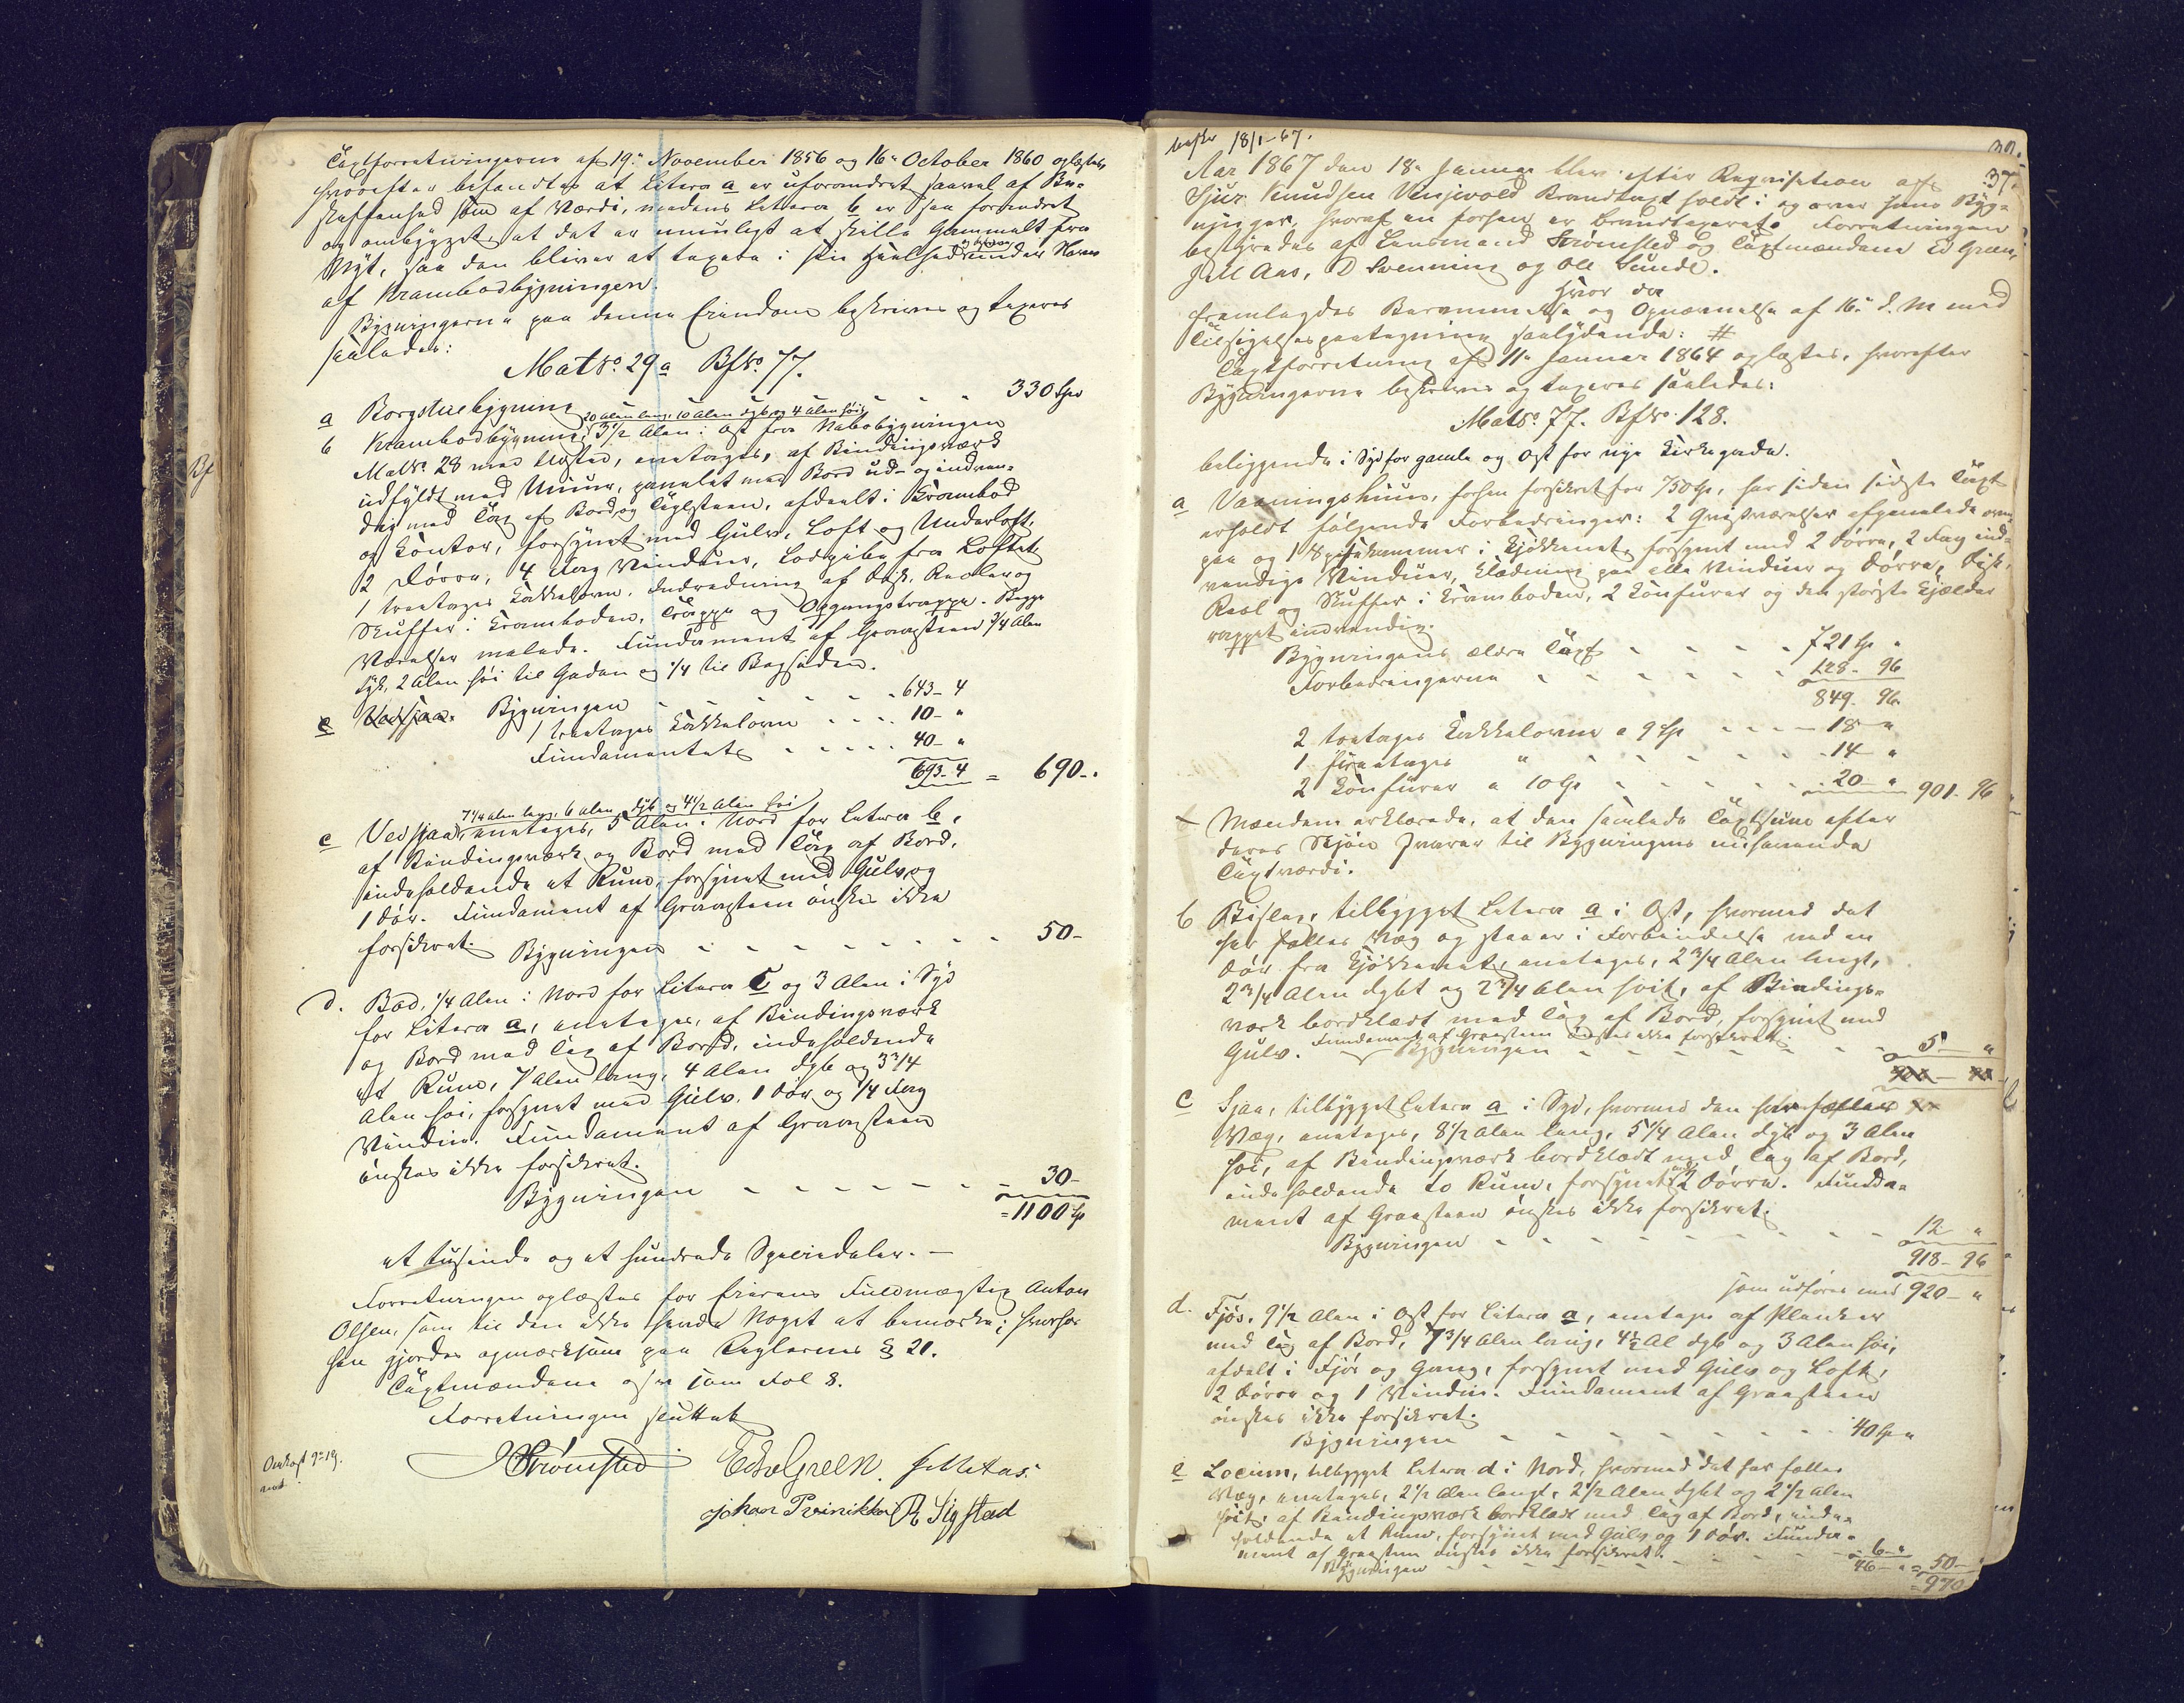 Taxtforretningerne af 19. November 1856 og 16. October 1860 oplæstes,
hvorefter befandtes at Litera a er uforandret saavel af Be-
skaffenhed som af Værdi, medens Litera b er saa forandret
og ombygget, at det er umuligt at skille Gammelt fra
Nyt, saa den bliver at taxere i sin Heelhed under Navn
af Krambodbygningen.
Bygningerne paa denne Eiendom beskrives og taxeres
saaledes:
MatNo. 29a BfNo. 77.
a Borgstuebygning - - - - 330 Spd
20 Alen lang, 10 Alen dyb og 4 Alen høi
b Krambodbygning, 3 1/2 Alen i Øst fra Nabobygningen
MatNo. 28 med Udsted, eenetages, af Bindingsværk
udfyldt med Muur, panelet med Bord ud- og indven-
dig med Tag af Bord og Taglsteen, afdeelt i Krambod
og Kontor, forsynet med Gulv, Loft og Underloft,
2 Dørre, 4 Fag Vinduer, Lodpibe fra Loftet
1 treetages Kakkelovn, Indredning af Disk, Reoler og
Skuffer i Kramboden, Trappe og Opgangstrappe. Begge
Værelser malede. Fundament af Graasteen 3/4 Alen
dyb, 2 Alen høi til Gaden og 1/4 til Bagsiden.
c Vedsjaa. Bygningen - - - - 643 - 4
1 treetages Kakkelovn - - - - 10 - "
Fundamentet - - - - 40 - "
693 - 4 = 690 -
7 1/4 Alen lang, 6 Alen dyb og 4 1/2 Alen høi
c Vedsjaa, eenetages, 5 Alen i Nord for Litera b,
af Bindingsværk og Bord med Tag af Bord,
indeholdende et Rum, forsynet med Gulv og
1 Dør. Fundament af Graasteen ønskes ikke
forsikret.
Bygningen - - - - 50 -
d. Bod, 1/4 Alen i Nord for Litera C og 3 Alen i Syd
for Litera a, eenetages, af Bindingsværk
og Bord med Tag af Bord, indeholdende
et Rum, 7 Alen lang, 4 Alen dyb og 3 3/4
Alen høi, forsynet med Gulv, 1 Dør og 1/4 Fag
Vindue. Fundament af Graasteen
ønskes ikke forsikret.
Bygningen - - - - 30 -
= 1100 Sp
et tusinde og et hundrede Speciedaler. -
Forretningen oplæstes for Eierens Fuldmægtig Anton
Olsen, som til den ikke havde Noget at bemærke; hvorfor
han gjordes opmærksom paa Reglernes § 21.
Taxtmændene som Fol 8.
Forretningen sluttet
Strømsted Edv Green
R Sigstad
beskr 18/1-67.
37.
Aar 1867 den 18. Januar blev efter Reqvisition af
Sjur Knudsen Venjevold Brandtaxt holdt i og over hans Byg-
ninger, hvoraf en forhen er brandtaxeret. Forretningen
bestyredes af Lensmand Strømsted og Taxtmændene Ed Green,
J M Aas, D Svenning og Ole Sunde.
Hvor da
fremlagdes Berammelse og Opnævnelse af 16. d. M med
Tilsigelsespaategning saalydende: #
Taxtforretning af 11. Januar 1864 oplæstes, hvorefter
Bygningerne beskrives og taxeres saaledes:
MatNo. 77. BfNo. 128.
beliggende i Syd for gamle og Øst for nye Kirkegade.
a Vaaningshuus, forhen forsikret for 750 Sp, har siden sidste Taxt
erholdt følgende Forbedringer: 2 Qvistværelser afpanelede oven-
paa og 1 Spisekammer i Kjøkkenet, forsynet med 2 Dørre, 2 Fag ind-
vendige Vinduer, Klædning paa alle Vinduer og Dørre, Disk,
Reol og Skuffer i Kramboden, 2 Komfurer og den største Kjælder
rappet indvendig.
Bygningens ældre Taxt - - - - 721 Sp "
Forbedringerne - - - - 128 - 96
849. 96.
2 toetages Kakkelovne a 9 Sp - - - - 18 "
1 " - - - - 14 "
2 Komfurer a 10 Sp - - - - 20 - " 901 - 96
Mændene erklærede, at den samlede Taxtsum efter
deres Skjøn svarer til Bygningens nuværende
Taxtværdi.
b Bislag, tilbygget Litera a i Øst, hvormed det
har fælles Væg og staaer i Forbindelse ved en
Dør fra Kjøkkenet, eenetages, 2 3/4 Alen langt,
2 3/4 Alen dybt og 2 3/4 Alen høit, af Bindings-
værk bordklædt med Tag af Bord, forsynet med
Gulv. Fundament af Graasteen ønskes ikke forsikret.
Bygningen - - - - 5 - "
C Sjaa, tilbygget Litera a i Syd, hvormed den har fælles
Væg, eenetages, 8 1/2 Alen lang, 5 1/4 Alen dyb og 3 Alen
høi, af Bindingsværk bordklædt med Tag af Bord,
indeholdende to Rum, forsynet med 2 Dørre. Funda-
ment af Graasteen ønskes ikke forsikret.
Bygningen - - - - 12 "
918 - 96
som udføres med 920 - "
d. Fjøs, 9 1/2 Alen i Øst for Litera a, eenetages af Planker
med Tag af Bord, 7 3/4 Alen lang, 4 1/2 Al dyb og 3 Alen høi,
afdelt i Fjøs og Gang, forsynet med Gulv og Loft,
2 Dørre og 1 Vindue. Fundament af Graasteen
ønskes ikke forsikret.
Bygningen - - - - 40 Sp "
e Locum, tilbygget Litera d i Nord, hvormed det har fælles
Væg, eenetages, 2 1/2 Alen langt, 2 1/2 Alen dybt og 2 1/2 Alen
høit, af Bindingsværk bordklædt med Tag af Bord, inde-
holdende et Rum, forsynet med Gulv og 1 Dør. Funda-
ment af Graasteen ønskes ikke forsikret.
Bygningen - - - - 6 - "
46 - " = 50 -
= 970